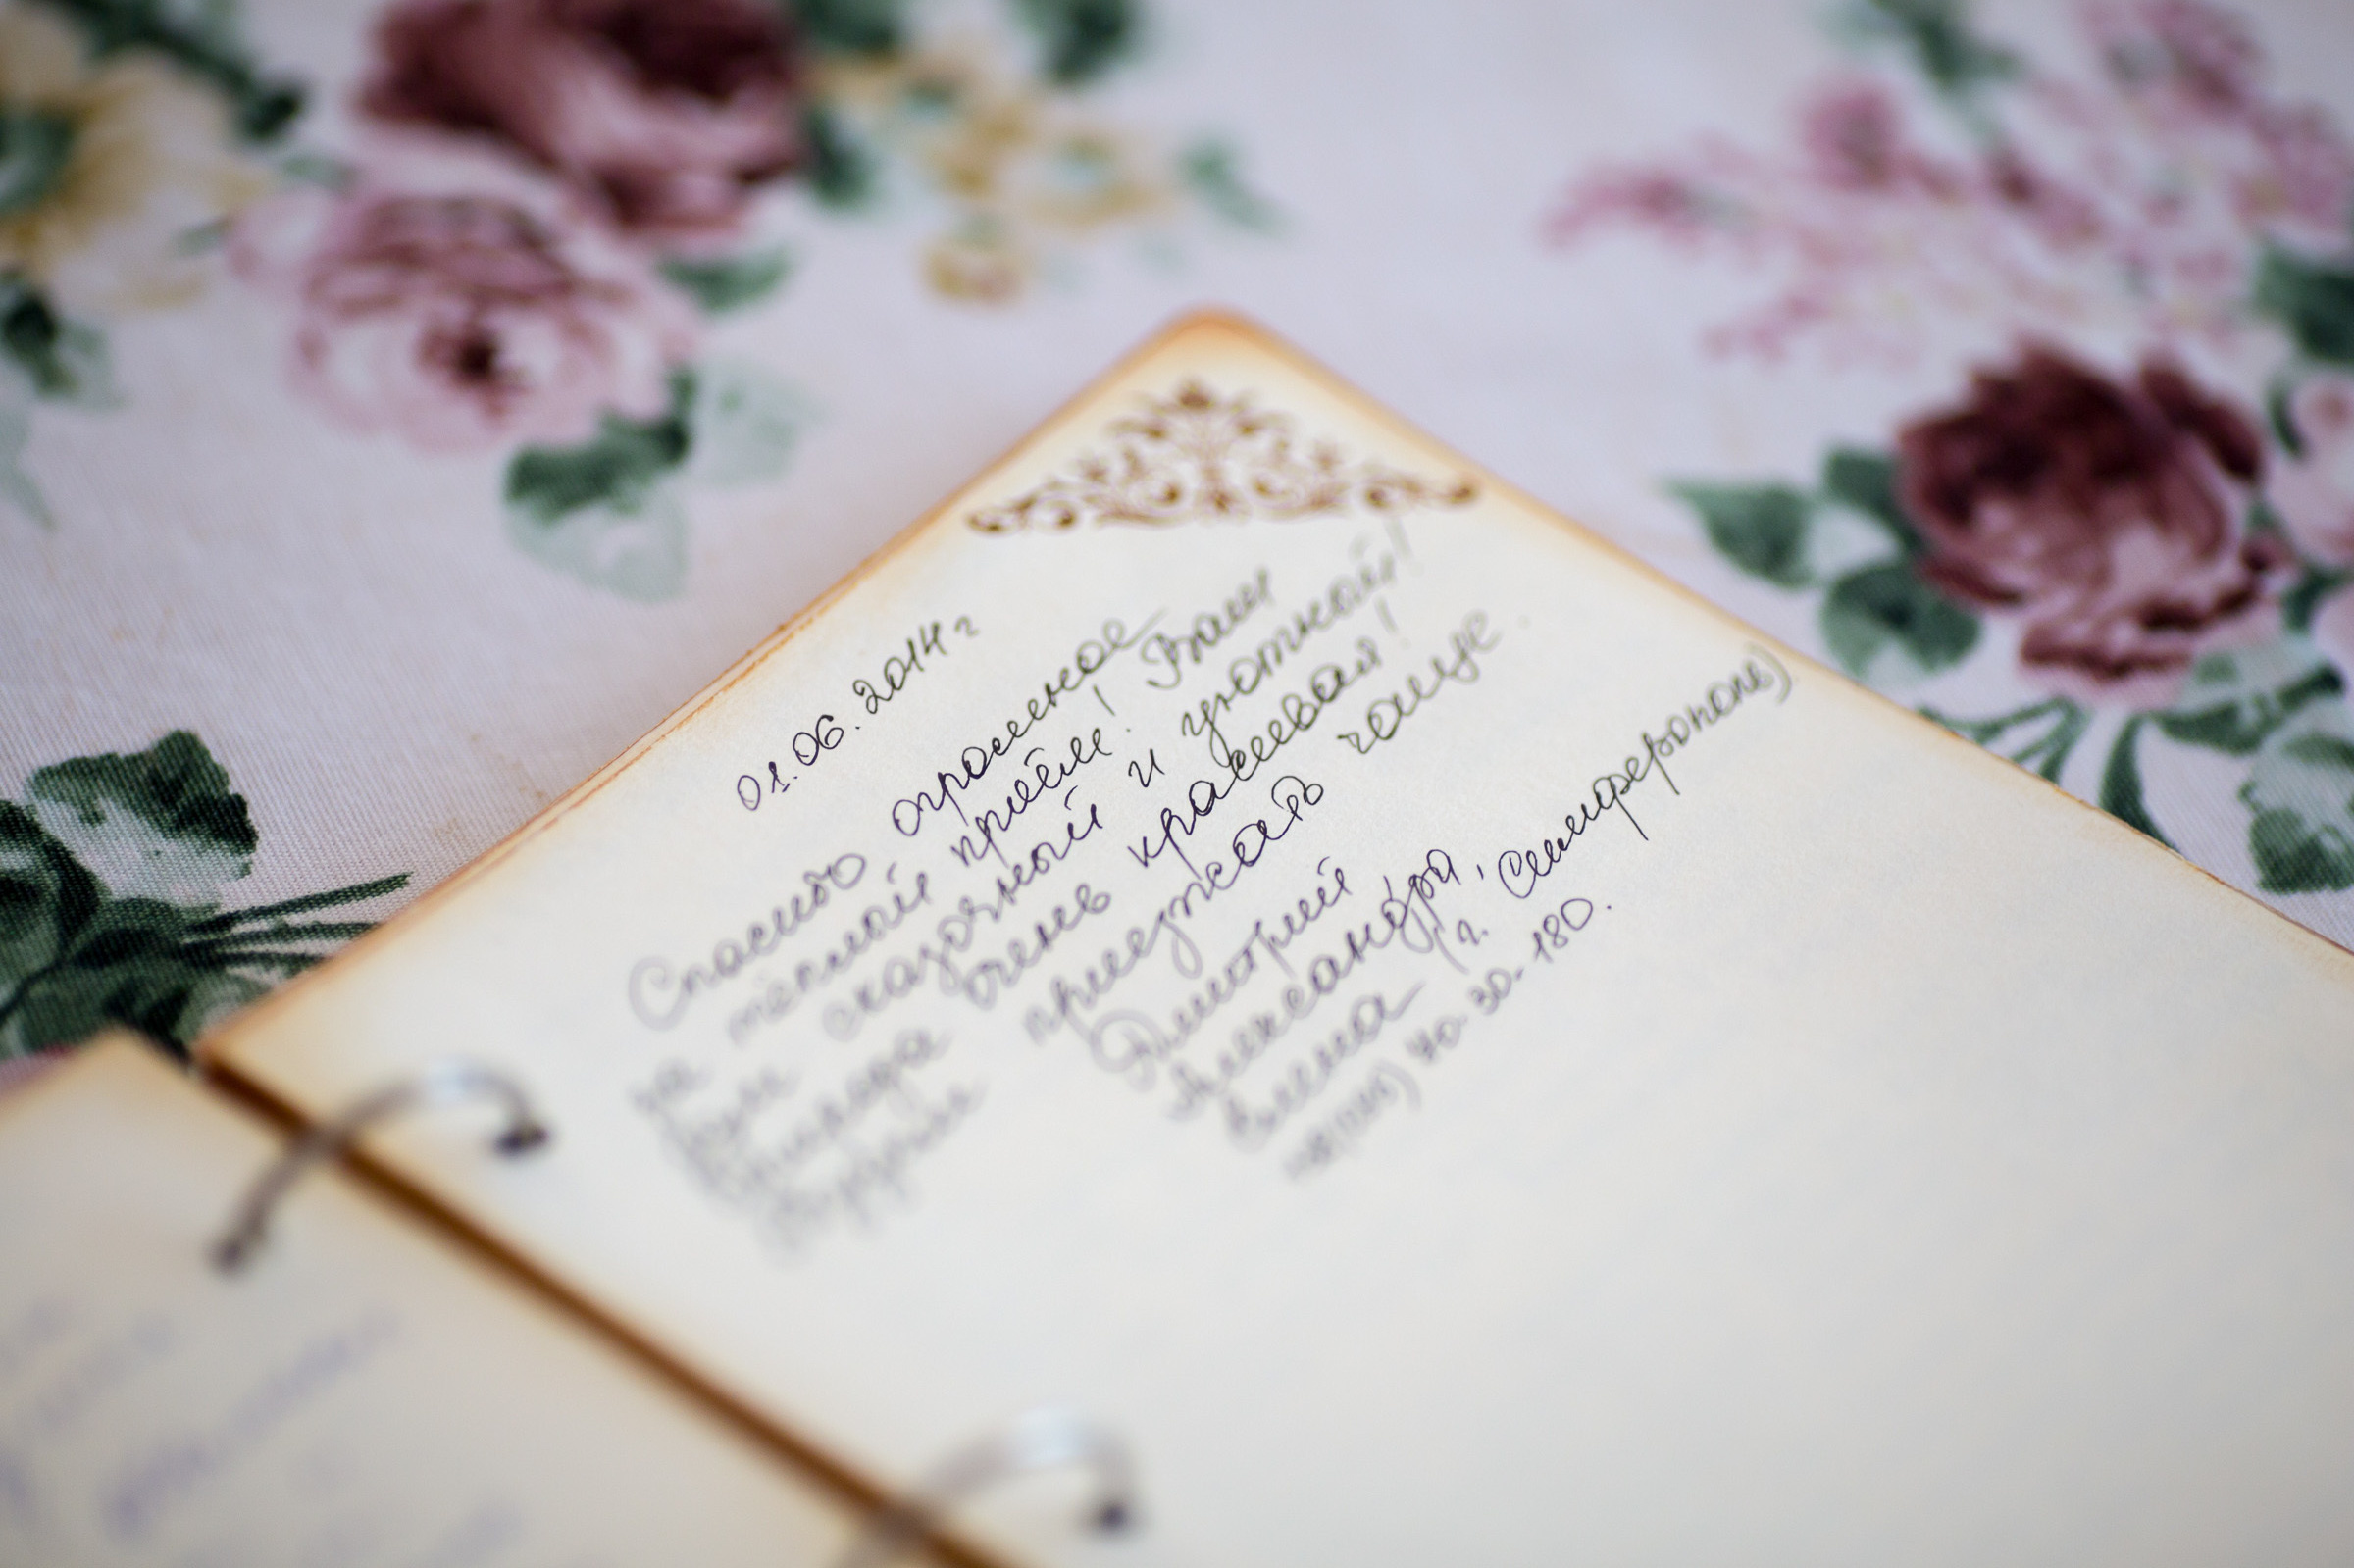 01.06.2014 г
Спасибо огромное
за теплый приём! Ваш
дом сказочный и уютный!
Природа очень красивая!
Будем приезжать чаще.
Дмитрий
Александра,
Елена (г. Симферополь)
30-180.